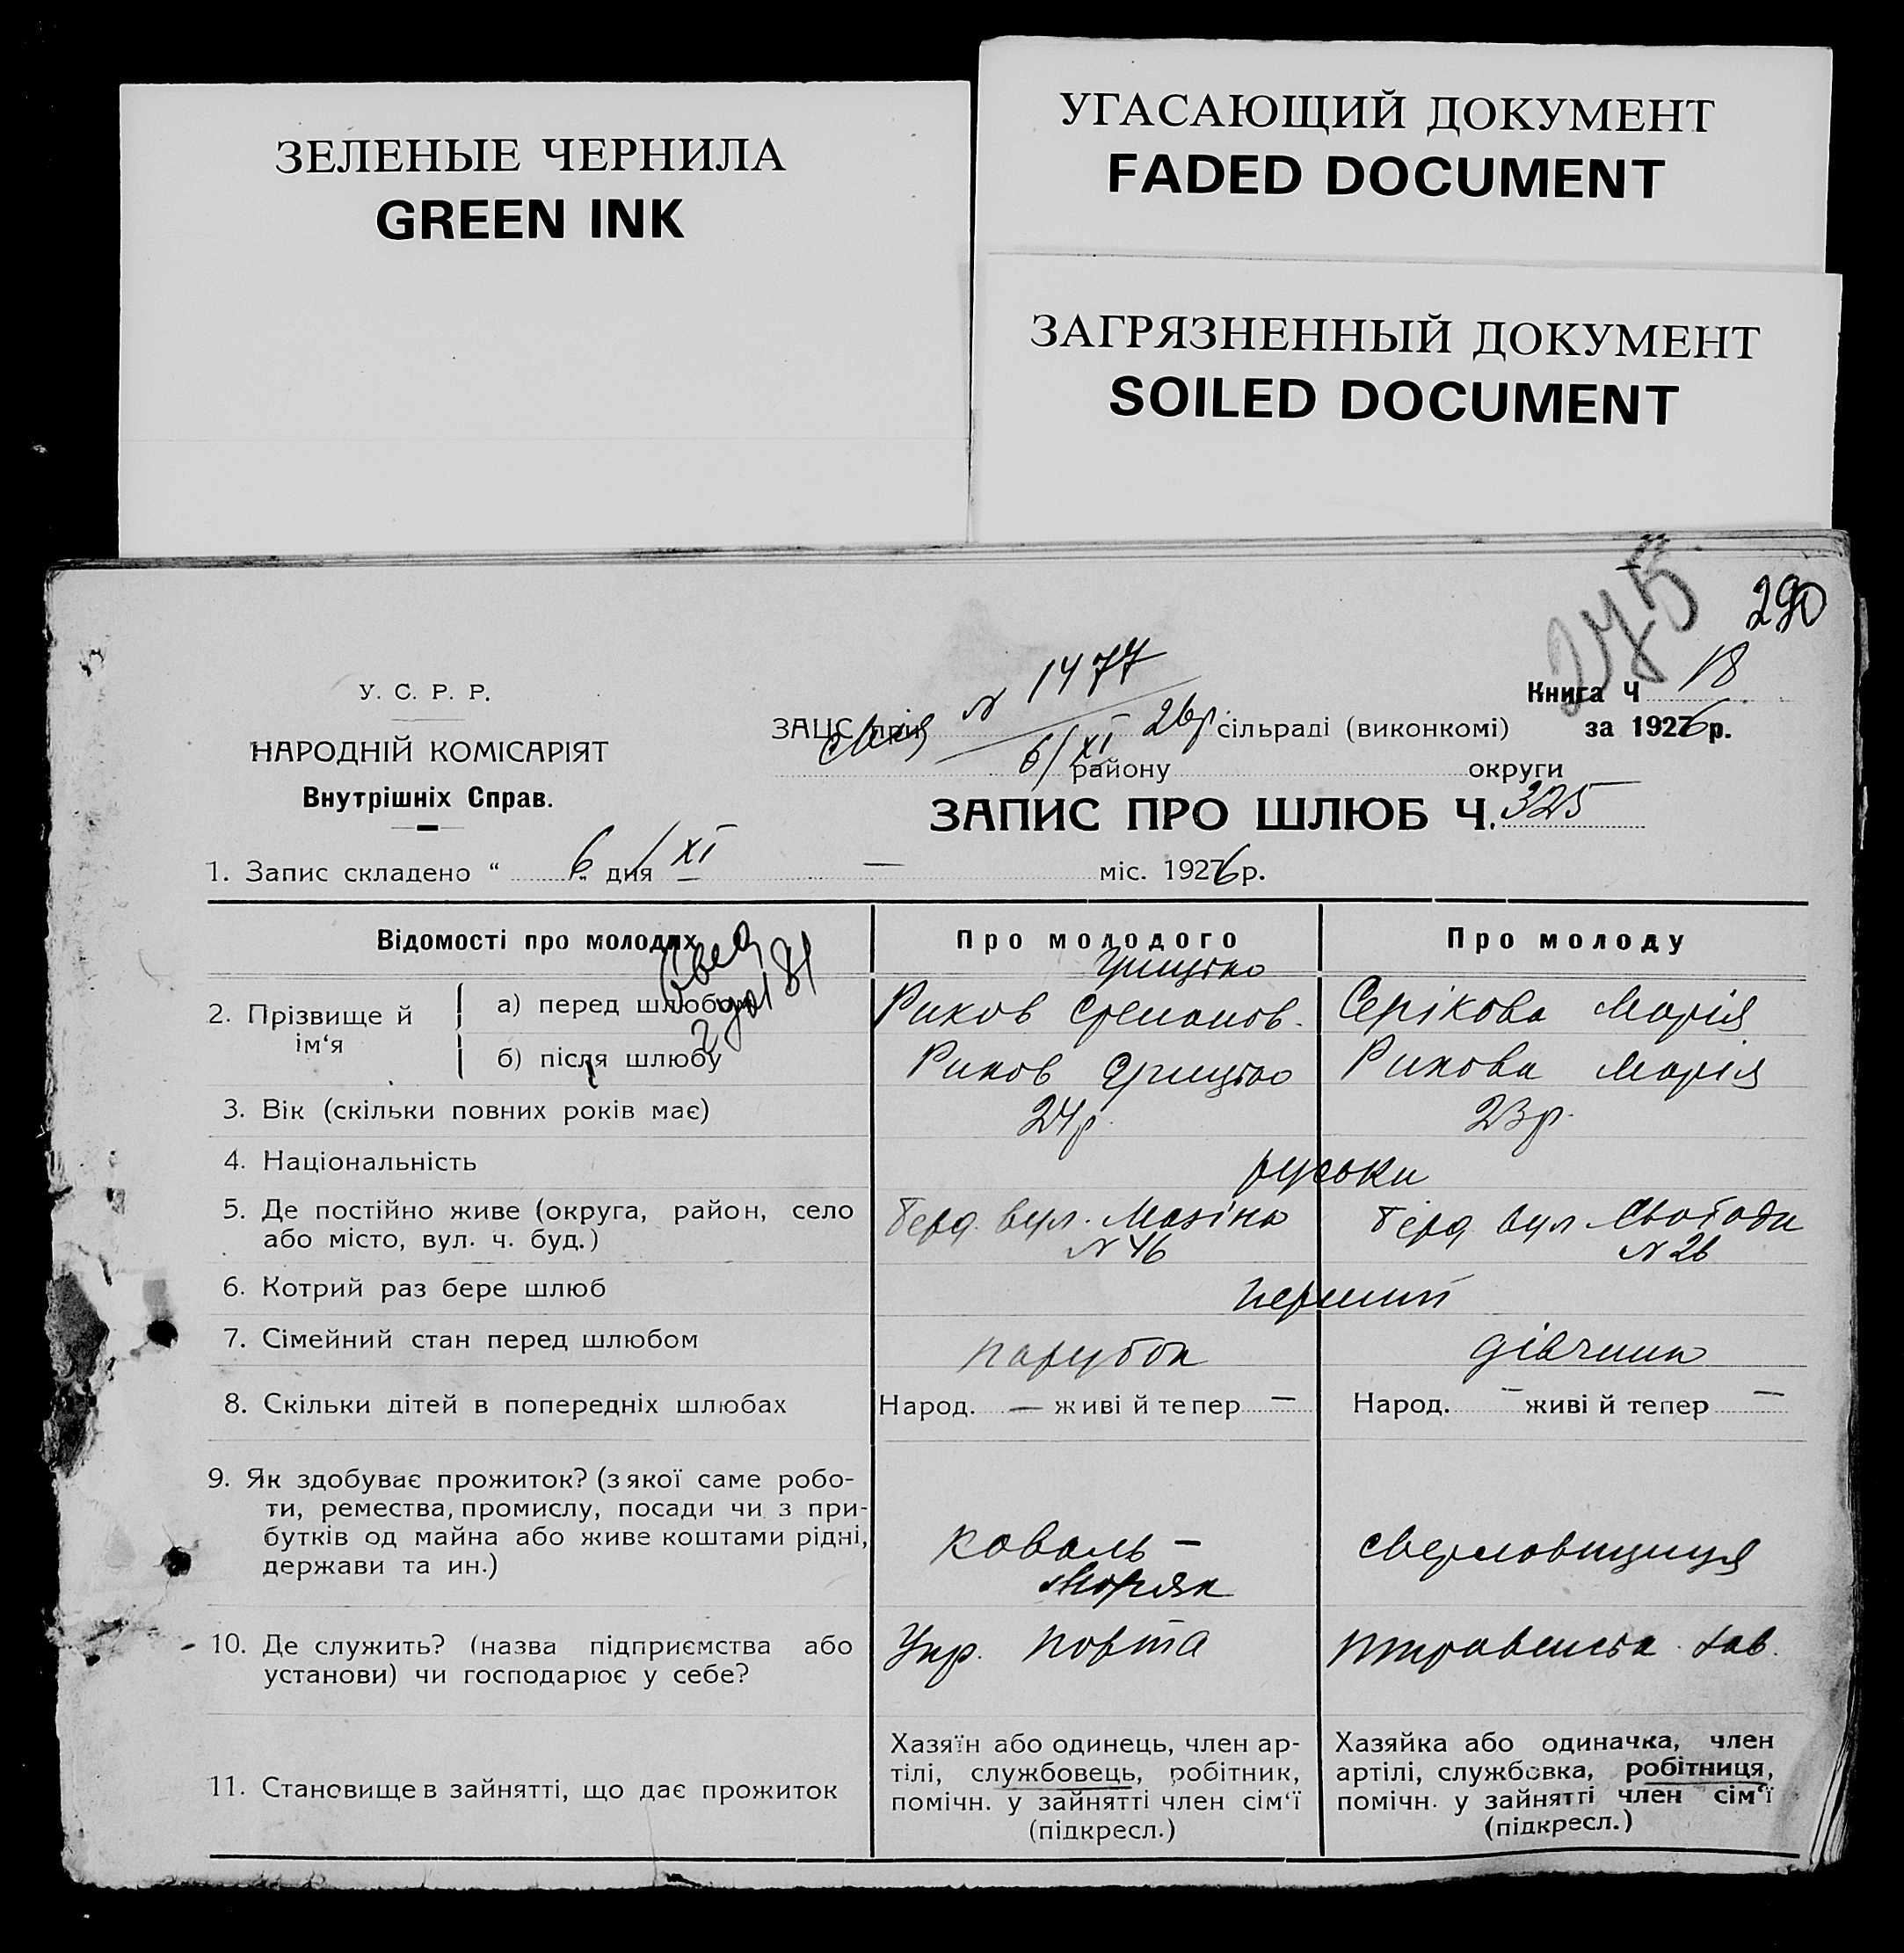 ЗЕЛЕНЫЕ ЧЕРНИЛА
GREEN INK
УГАСАЮЩИЙ ДОКУМЕНТ
FADED DOCUMENT
ЗАГРЯЗНЕННЫЙ ДОКУМЕНТ
SOILED DOCUMENT
275
290
У. С. Р. Р.
НАРОДНІЙ КОМІСАРІЯТ
Внутрішніх Справ.
Книга Ч 18
за 1926 р.
№ 1477
ЗАЦС при 6/XI 26р сільраді (виконкомі)
району округи
ЗАПИС ПРО ШЛЮБ Ч. 325
1. Запис складено “ 6 „ дня XI — міс. 1926 р.
Відомості про молодих
Про молодого
Про молоду
2. Прізвище й ім‘я
а) перед шлюбом
Грицько
Риков Степанов.
Серікова Марія
б) після шлюбу
Риков Грицько
Рикова Марія
3. Вік (скільки повних років має)
24р.
23р.
4. Національність
руськи
5. Де постійно живе (округа, район, село
або місто, вул. ч. буд.)
Берд. вул. Мазіна
№ 46
Берд. вул Свободи
№ 26
6. Котрий раз бере шлюб
перший
7. Сімейний стан перед шлюбом
парубок
дівчина
8. Скільки дітей в попередніх шлюбах
Народ. — живі й тепер —
Народ. — живі й тепер —
9. Як здобуває прожиток? (з якої саме робо-
ти, ремества, промислу, посади чи з при-
бутків од майна або живе коштами рідні,
держави та ин.)
коваль –
моряк
сверловщиця
10. Де служить? (назва підприємства або
установи) чи господарює у себе?
Упр. Порта
Зав.
11. Становище в зайнятті, що дає прожиток
Хазяїн або одинець, член ар-
тілі, службовець, робітник,
помічн. у зайнятті член сім‘ї
(підкресл.)
Хазяйка або одиначка, член
артілі, службовка, робітниця,
помічн. у зайнятті член сім‘ї
(підкресл.)